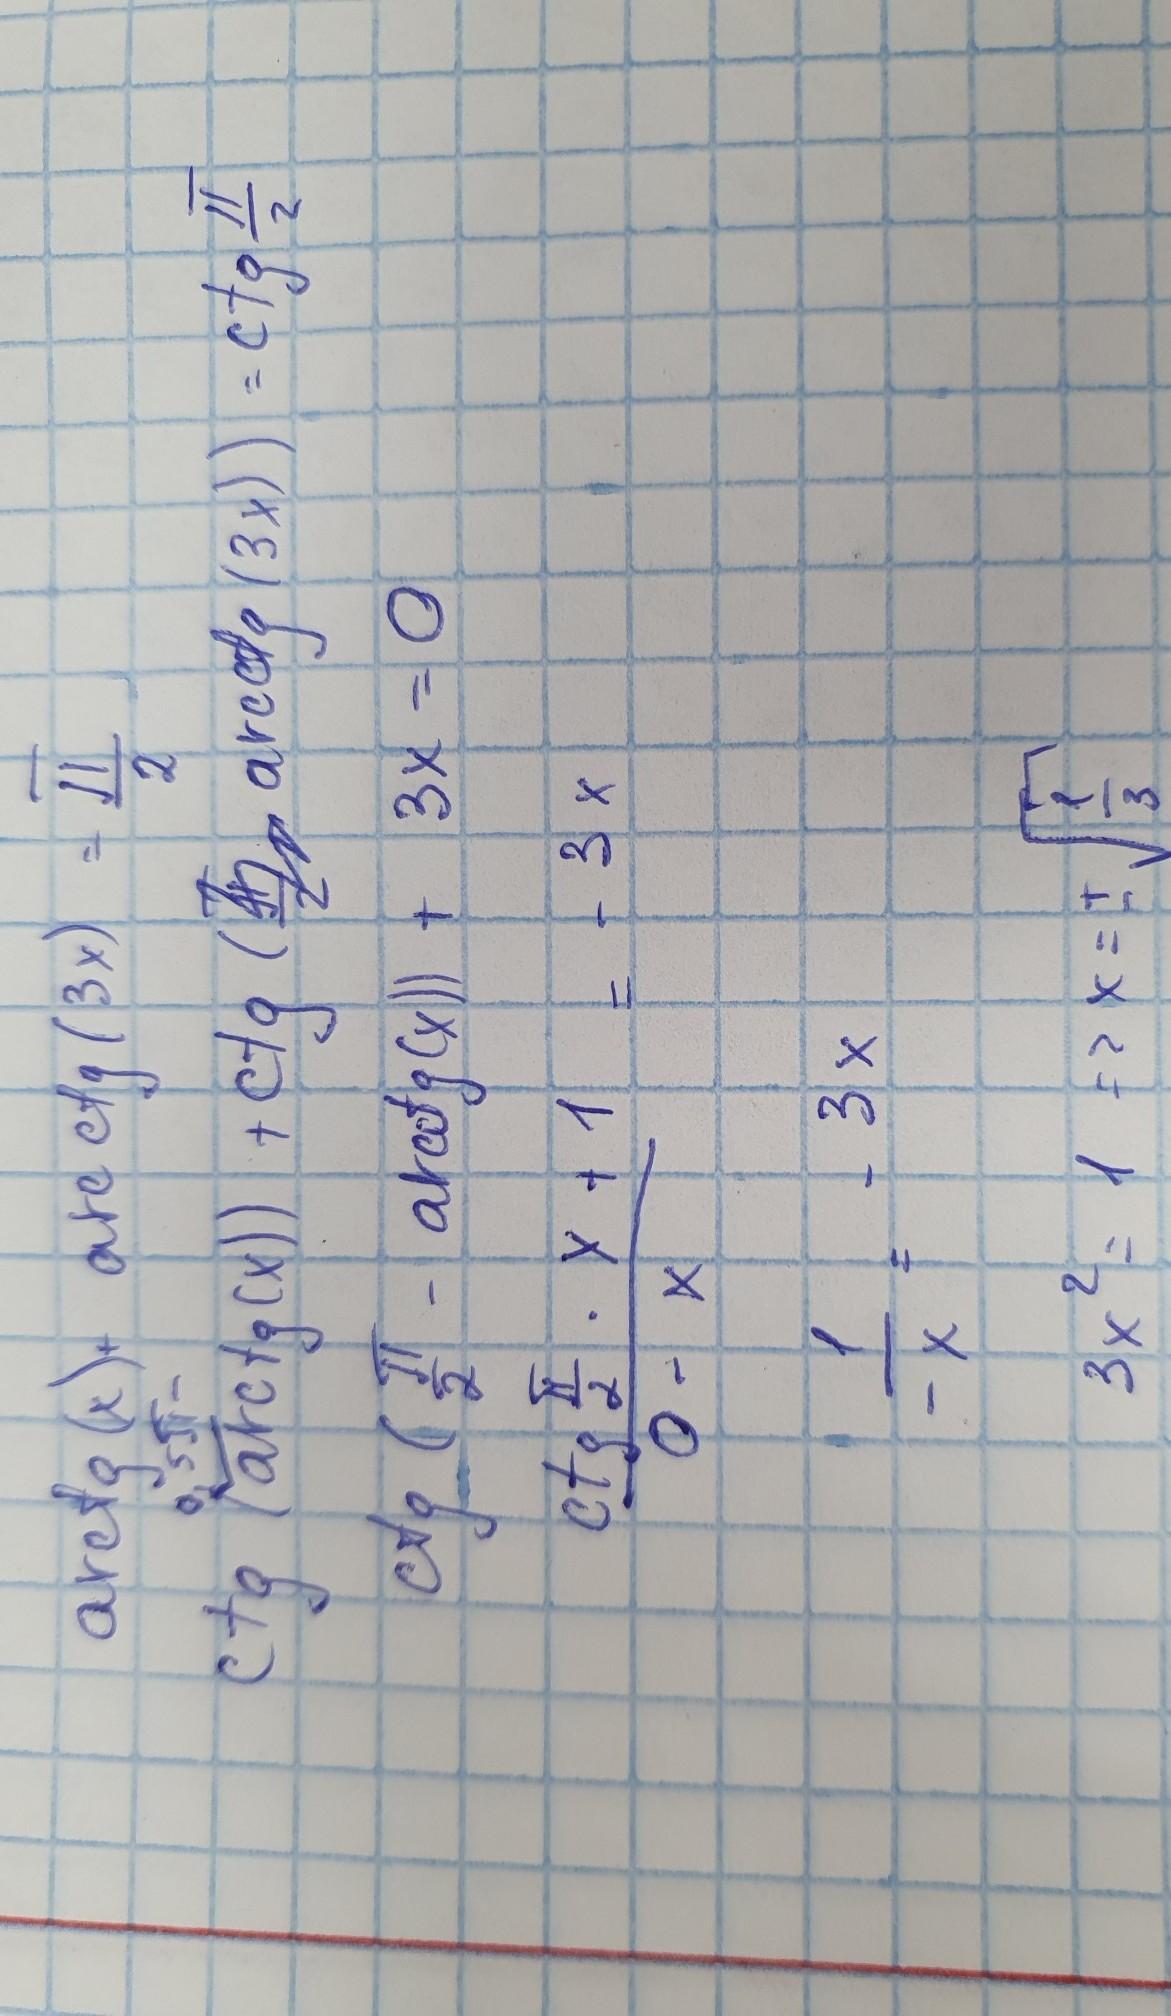 arcctg(x) + arcctg(3x) = π/2
0,5π -
ctg (arcctg(x)) + ctg ( arcctg(3x)) = ctg π/2
ctg (π/2 - arcctg(x)) + 3x = 0
(ctg π/2 · x + 1)/(0 - x) = - 3x
1/(-x) = - 3x
3x² = 1 => x = ±√(1/3)